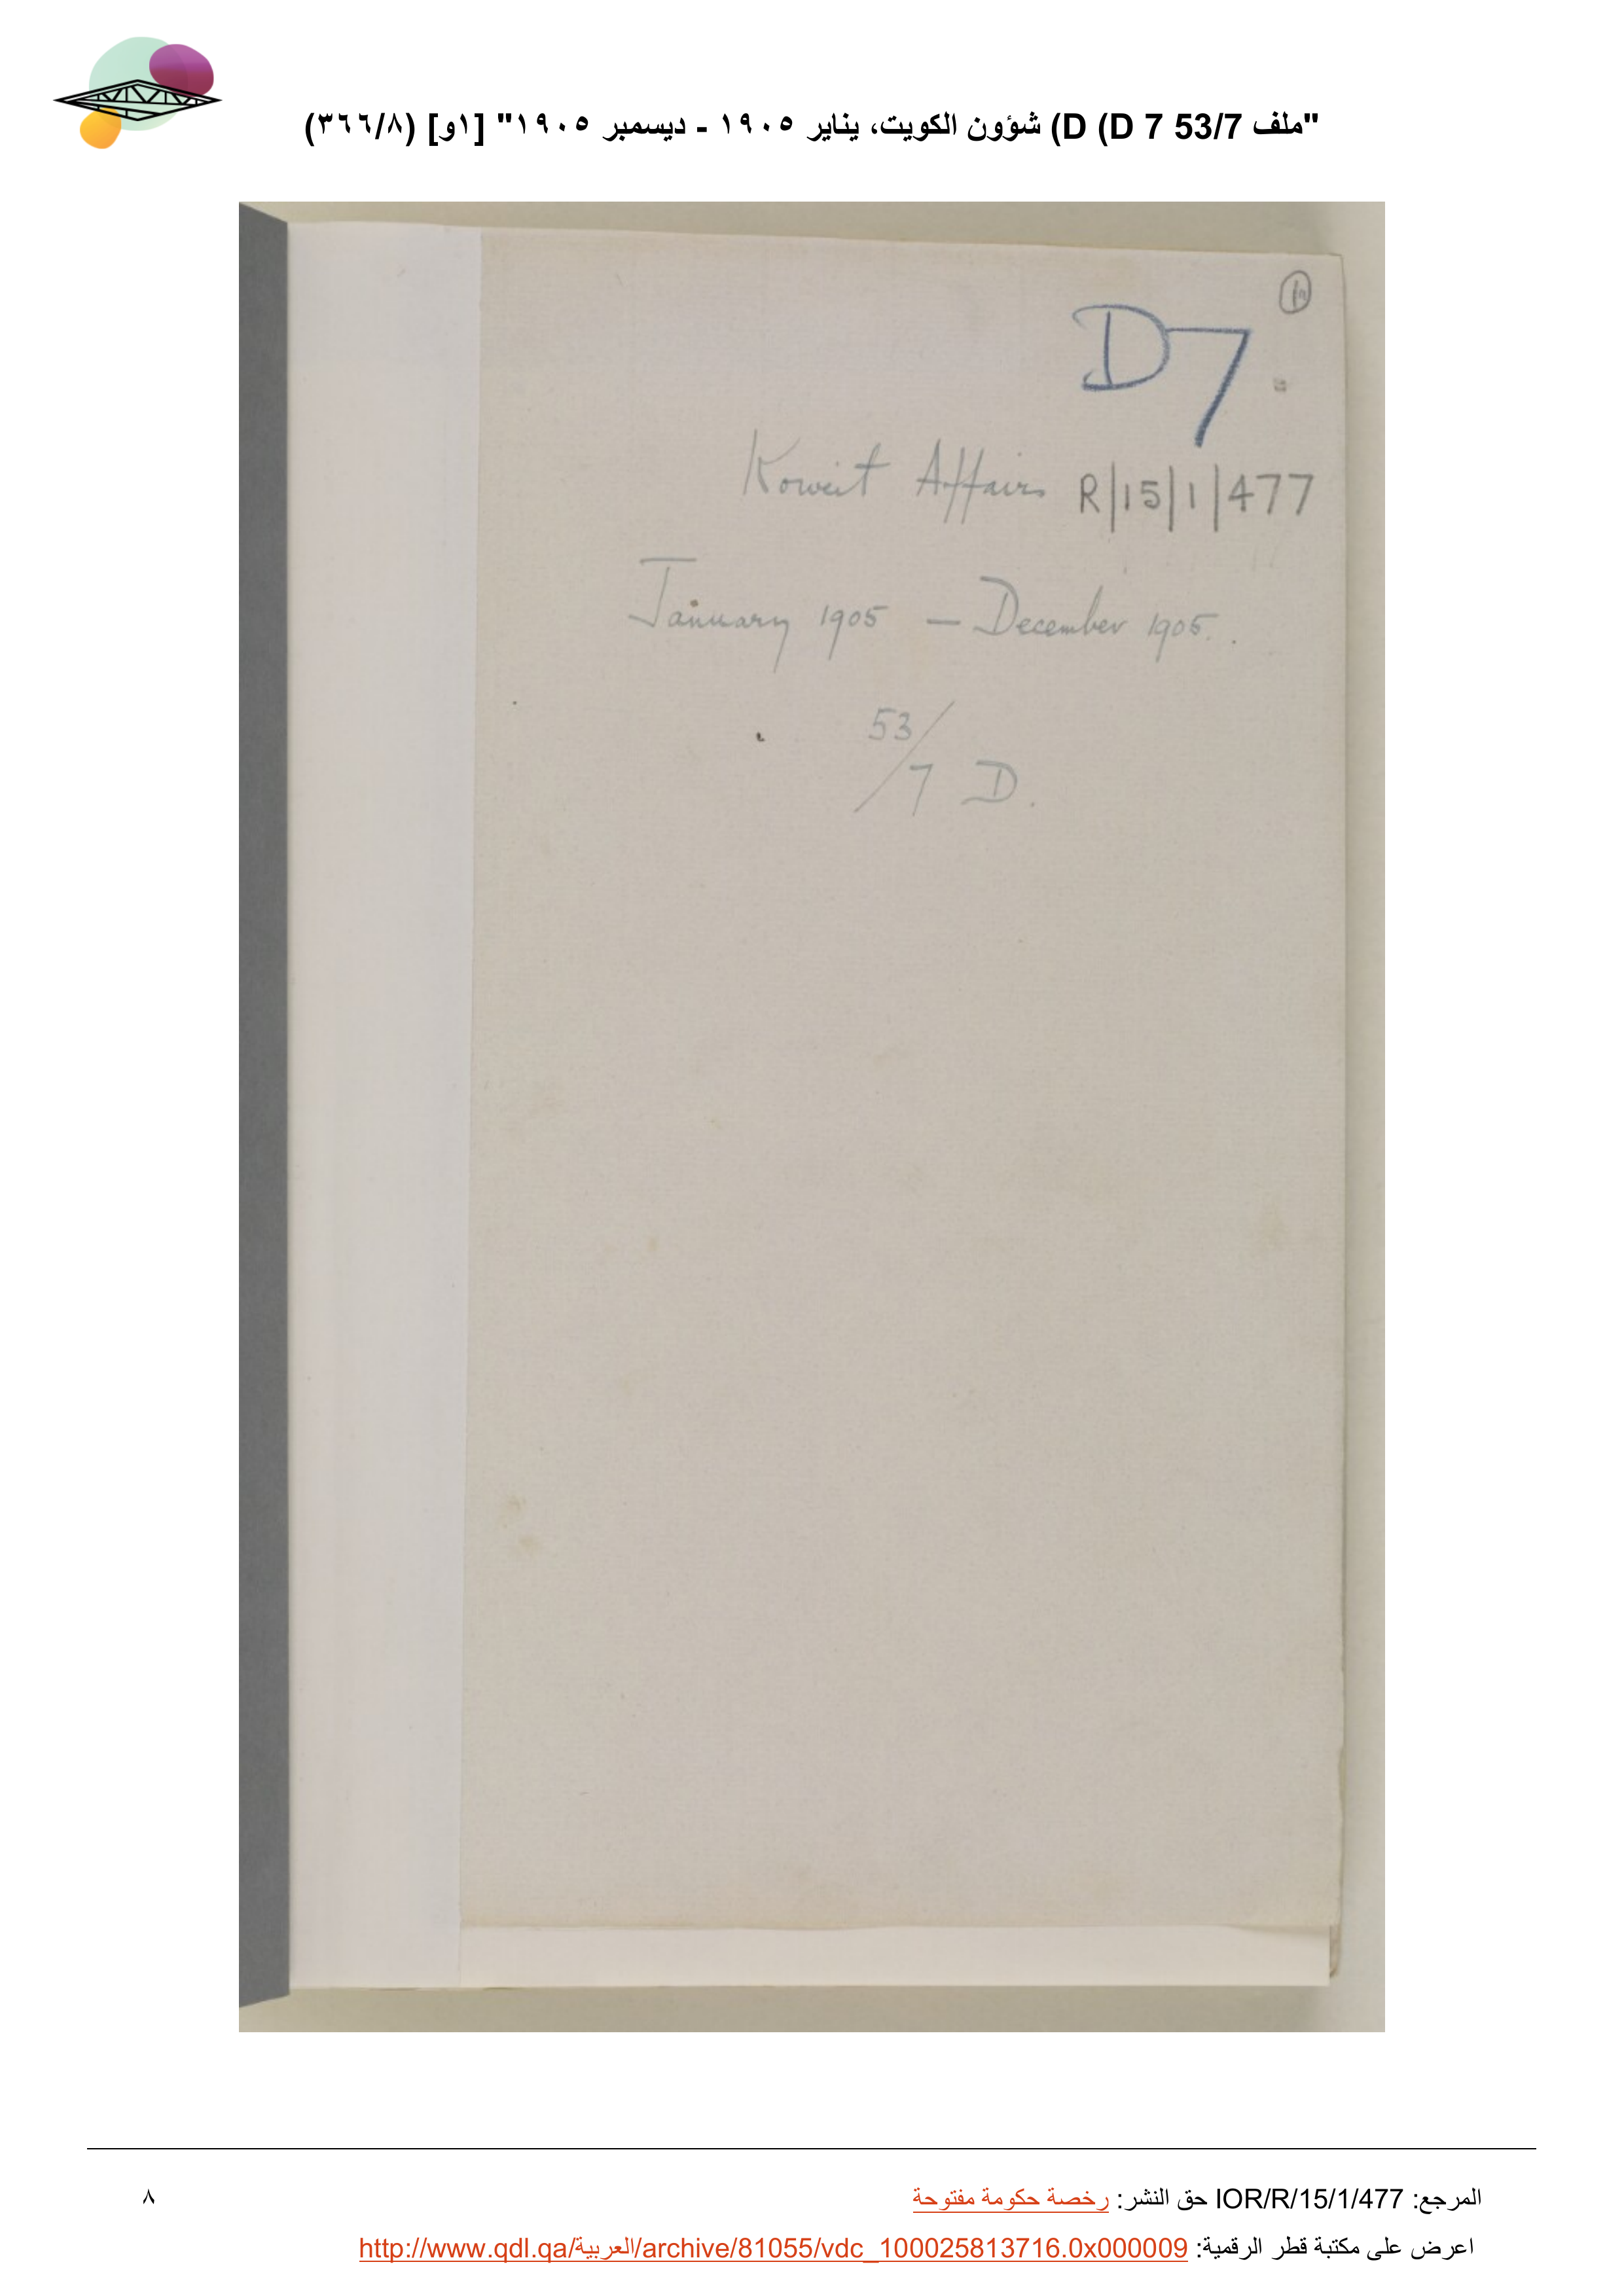 "ملف 53/7 D (D 7) شؤون الكويت، يناير ١٩٠٥ - ديسمبر ١٩٠٥" [١و] (٣٦٦/٨)
D7
Koweit Affairs R/15/1/477
January 1905 — December 1905.
53/
7 D.
المرجع: IOR/R/15/1/477 حق النشر: رخصة حكومة مفتوحة
٨
اعرض على مكتبة قطر الرقمية: http://www.qdl.qa/العربية/archive/81055/vdc_100025813716.0x000009